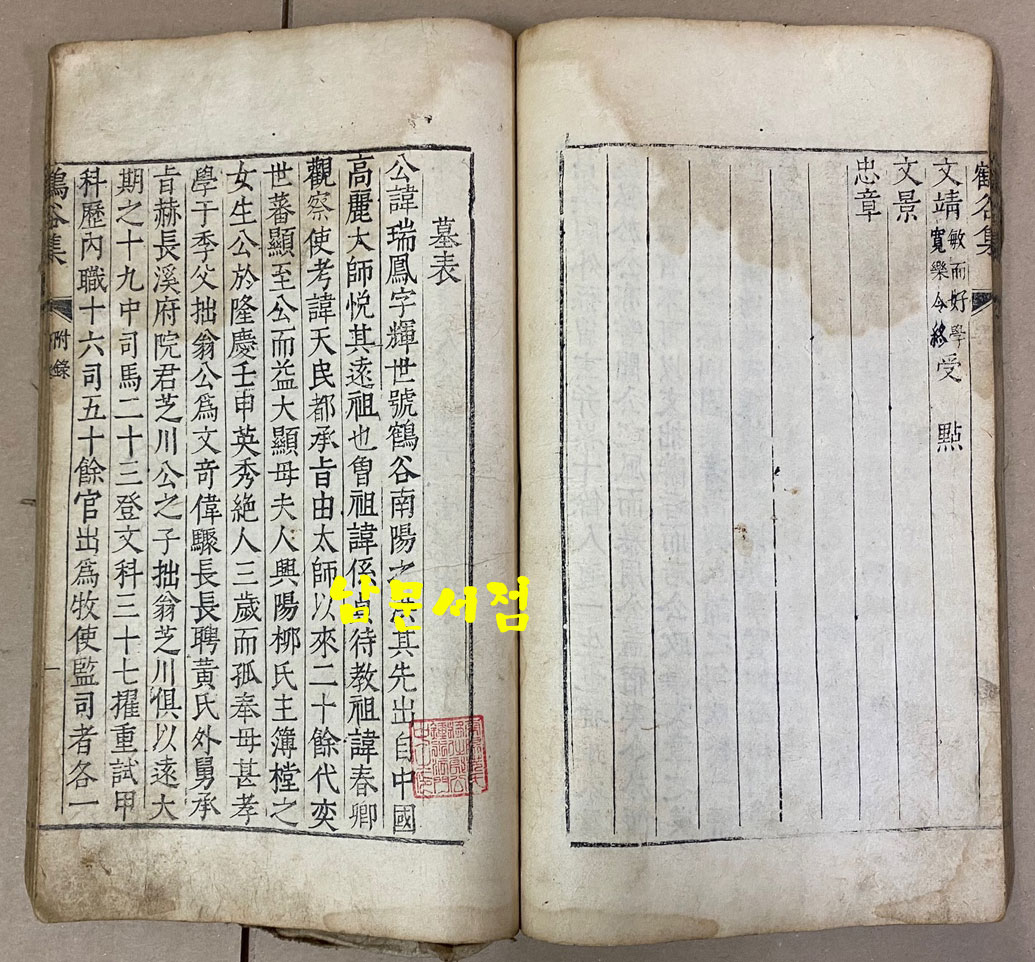 鶴谷集
文靖敏而好學寬樂令終受點
文景
忠章
墓表
公諱瑞鳳字輝世號鶴谷南陽之洪其先出自中國
高麗大師悅其遠祖也曾祖諱係貞待教祖諱春卿
觀察使考諱天民都承旨由太師以來二十餘代奕
世蕃顯至公而益大顯母夫人興陽柳氏主簿樘之
女生公於隆慶壬申英秀絶人三歲而孤奉母甚孝
學于季父拙翁公爲文奇偉驟長長聘黃氏外舅承
旨赫長溪府院君芝川公之子拙翁芝川俱以遠大
期之十九中司馬二十三登文科三十七擢重試甲
科歷內職十六司五十餘官出爲牧使監司者各一
鶴谷集 附錄 一
남문서점